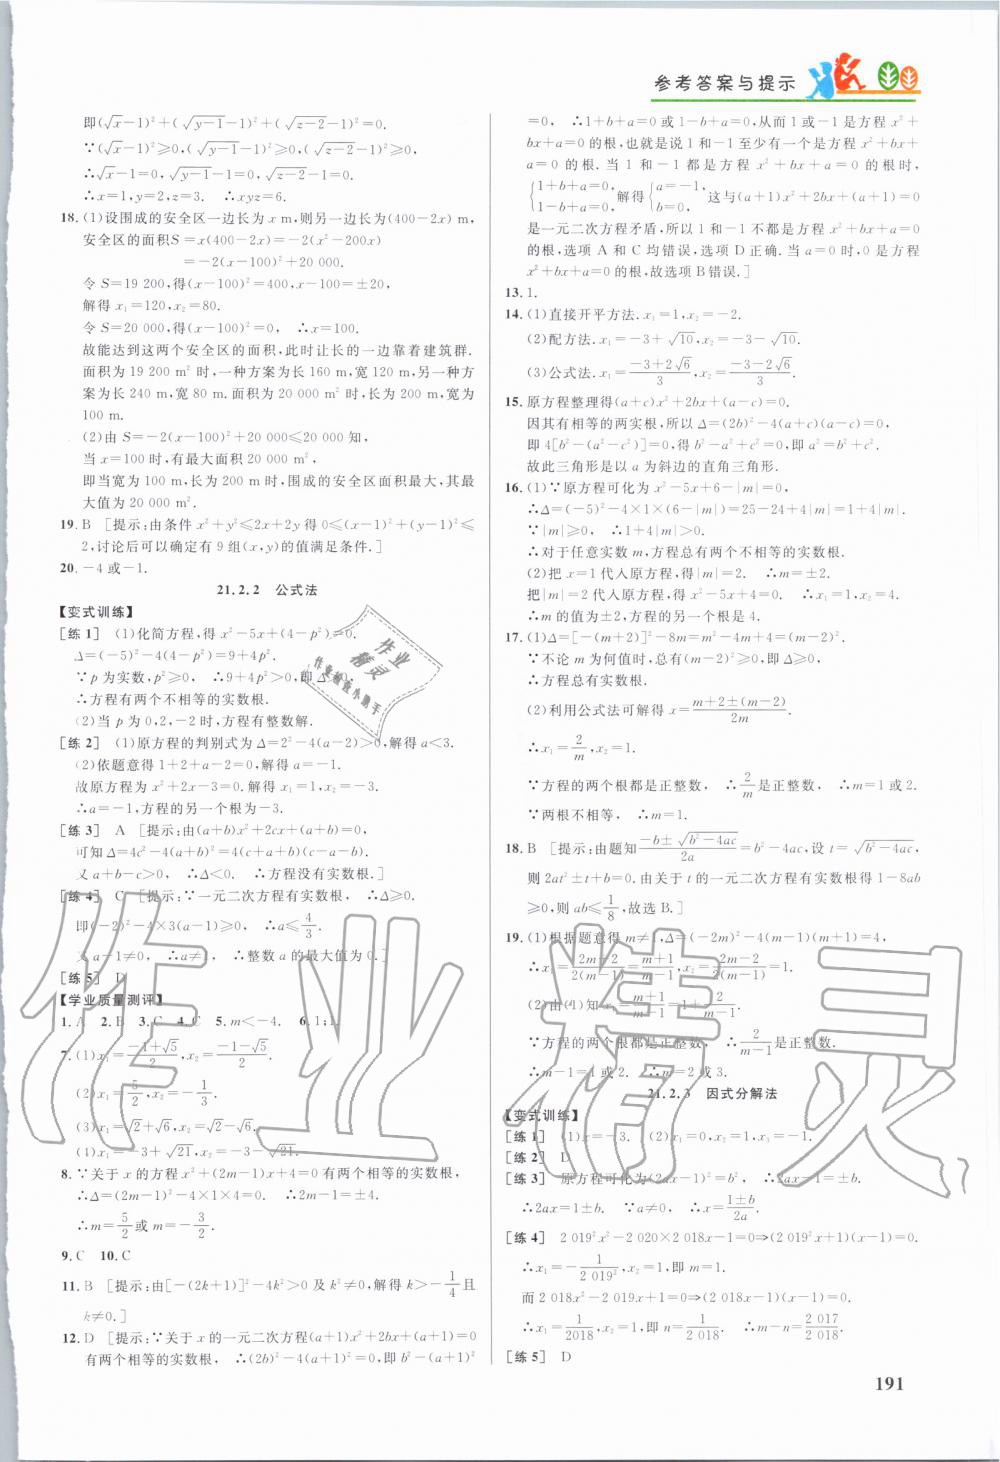 参考答案与提示
即(√x-1)²+(√(y-1)-1)²+(√(z-2)-1)²=0.
∵(√x-1)²≥0,(√(y-1)-1)²≥0,(√(z-2)-1)²≥0,
∴√x-1=0,√(y-1)-1=0,√(z-2)-1=0.
∴x=1,y=2,z=3. ∴xyz=6.
18.(1)设围成的安全区一边长为x m,则另一边长为(400-2x) m,
安全区的面积S=x(400-2x)=-2(x²-200x)
=-2(x-100)²+20 000.
令S=19 200,得(x-100)²=400,x-100=±20,
解得x₁=120,x₂=80.
令S=20 000,得(x-100)²=0, ∴x=100.
故能达到这两个安全区的面积,此时让长的一边靠着建筑群.
面积为19 200 m²时,一种方案为长160 m,宽120 m,另一种方
案为长240 m,宽80 m.面积为20 000 m²时,长为200 m,宽为
100 m.
(2)由S=-2(x-100)²+20 000≤20 000知,
当x=100时,有最大面积20 000 m²,
即当宽为100 m,长为200 m时,围成的安全区面积最大,其最
大值为20 000 m².
19.B [提示:由条件x²+y²≤2x+2y得0≤(x-1)²+(y-1)²≤
2,讨论后可以确定有9组(x,y)的值满足条件.]
20.-4或-1.
21.2.2 公式法
【变式训练】
[练1] (1)化简方程,得x²-5x+(4-p²)=0.
Δ=(-5)²-4(4-p²)=9+4p².
∵p为实数,p²≥0, ∴9+4p²>0,即Δ>0.
∴方程有两个不相等的实数根.
(2)当p为0,2,-2时,方程有整数解.
[练2] (1)原方程的判别式为Δ=2²-4(a-2)>0,解得a<3.
(2)依题意得1+2+a-2=0,解得a=-1.
故原方程为x²+2x-3=0.解得x₁=1,x₂=-3.
∴a=-1,方程的另一个根为-3.
[练3] A [提示:由(a+b)x²+2cx+(a+b)=0,
可知Δ=4c²-4(a+b)²=4(c-a-b)(c+a+b).
又a+b-c>0, ∴Δ<0. ∴方程没有实数根.]
[练4] C [提示:∵一元二次方程有实数根,
即(-2)²-4×3(a-1)≥0, ∴a≤4/3.
又a-1≠0, ∴a≠1, ∴整数a的最大值为0.]
[练5] D
【学业质量测评】
1.A 2.B 3.C 4.C 5.m<-4. 6.1;1.
7.(1)x₁=(-1+√5)/2,x₂=(-1-√5)/2.
(2)x₁=5/2,x₂=-1/3.
(3)x₁=√2+√6,x₂=√2-√6.
(4)x₁=-3+√21,x₂=-3-√21.
8.∵关于x的方程x²+(2m-1)x+4=0有两个相等的实数根,
∴Δ=(2m-1)²-4×1×4=0. ∴2m-1=±4.
∴m=5/2或m=-3/2.
9.C 10.C
11.B [提示:由[-(2k+1)]²-4k²>0及k²≠0,解得k>-1/4且
k≠0.]
12.D [提示:∵关于x的一元二次方程(a+1)x²+2bx+(a+1)=0
有两个相等的实数根, ∴(2b)²-4(a+1)²=0,即b²-(a+1)²
=0, ∴1+b+a=0或1-b+a=0,从而1或-1是方程x²+
bx+a=0的根,也就是说1和-1至少有一个是方程x²+bx+
a=0的根.当1和-1都是方程x²+bx+a=0的根时,
{1+b+a=0,1-b+a=0,解得{a=-1,b=0.这与(a+1)x²+2bx+(a+1)=0
是一元二次方程矛盾,所以1和-1不都是方程x²+bx+a=0
的根,选项A和C均错误,选项D正确.当a=0时,0是方程
x²+bx+a=0的根,故选项B错误.]
13.1.
14.(1)直接开平方法.x₁=1,x₂=-2.
(2)配方法.x₁=-3+√10,x₂=-3-√10.
(3)公式法.x₁=(-3+2√6)/3,x₂=(-3-2√6)/3.
15.原方程整理得(a+c)x²+2bx+(a-c)=0.
因其有相等的两实根,所以Δ=(2b)²-4(a+c)(a-c)=0,
即4[b²-(a²-c²)]=0,得b²-a²+c²=0,即a²=b²+c².
故此三角形是以a为斜边的直角三角形.
16.(1)∵原方程可化为x²-5x+6-|m|=0,
∴Δ=(-5)²-4×1×(6-|m|)=25-24+4|m|=1+4|m|.
∵|m|≥0, ∴1+4|m|>0.
∴对于任意实数m,方程总有两个不相等的实数根.
(2)把x=1代入原方程,得|m|=2.
把|m|=2代入原方程,得x²-5x+4=0, ∴x₁=1,x₂=4.
∴m的值为±2,方程的另一个根是4.
17.(1)Δ=[-(m+2)]²-8m=m²-4m+4=(m-2)².
∵不论m为何值时,总有(m-2)²≥0,即Δ≥0.
∴方程总有实数根.
(2)利用公式法可解得x=(m+2±(m-2))/2m.
∴x₁=2/m,x₂=1.
∵方程的两个根都是正整数, ∴2/m是正整数, ∴m=1或2.
∵两根不相等, ∴m=1.
18.B [提示:由题知(-b±√(b²-4ac))/2a=b²-4ac,设t=√(b²-4ac),
则2at²±t+b=0.由关于t的一元二次方程有实数根得1-8ab
≥0,则ab≤1/8,故选B.]
19.(1)根据题意得m≠1,Δ=(-2m)²-4(m-1)(m+1)=4,
∴x₁=(2m-2)/2(m-1)=1,x₂=(2m+2)/2(m-1)=(m+1)/(m-1).
(2)由(1)知x₂=(m+1)/(m-1)=1+2/(m-1).
∵方程的两个根都是正整数, ∴2/(m-1)是正整数.
∴m-1=1或2. ∴m=2或3.
21.2.3 因式分解法
【变式训练】
[练1] (1)x=-3. (2)x₁=0,x₂=1.
[练2] D
[练3] 原方程可化为(2ax-1)²=b², ∴2ax-1=±b.
∴2ax=1±b. ∵a≠0, ∴x=(1±b)/2a.
[练4] 2 019²x²-2 020×2 018x-1=0⇒(2 019²x+1)(x-1)=0.
∴x₁=-1/2 019²,x₂=1,即m=1.
而2 018x²-2 019x+1=0⇒(2 018x-1)(x-1)=0.
∴x₁=1/2018,x₂=1,即n=1/2 018. ∴m-n=2 017/2 018.
[练5] D
191
作业精灵
作业检查小助手
作业精灵